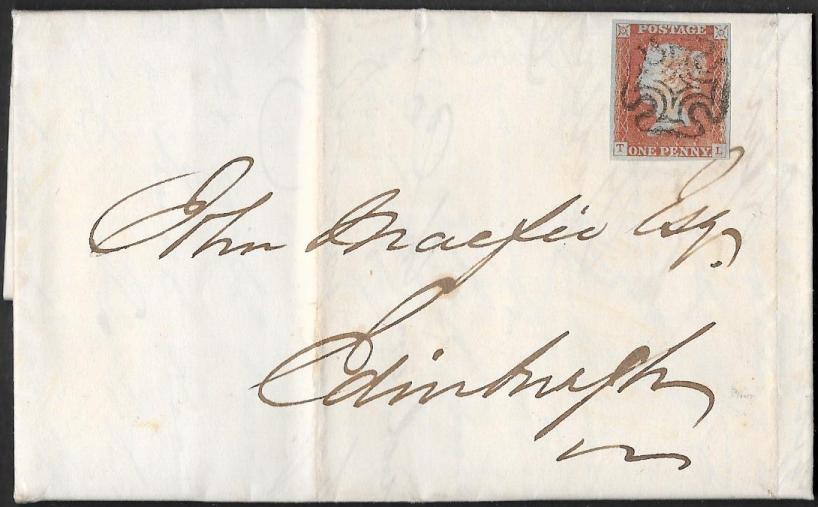 POSTAGE
T ONE PENNY L
John Macfie Esq.
Edinburgh